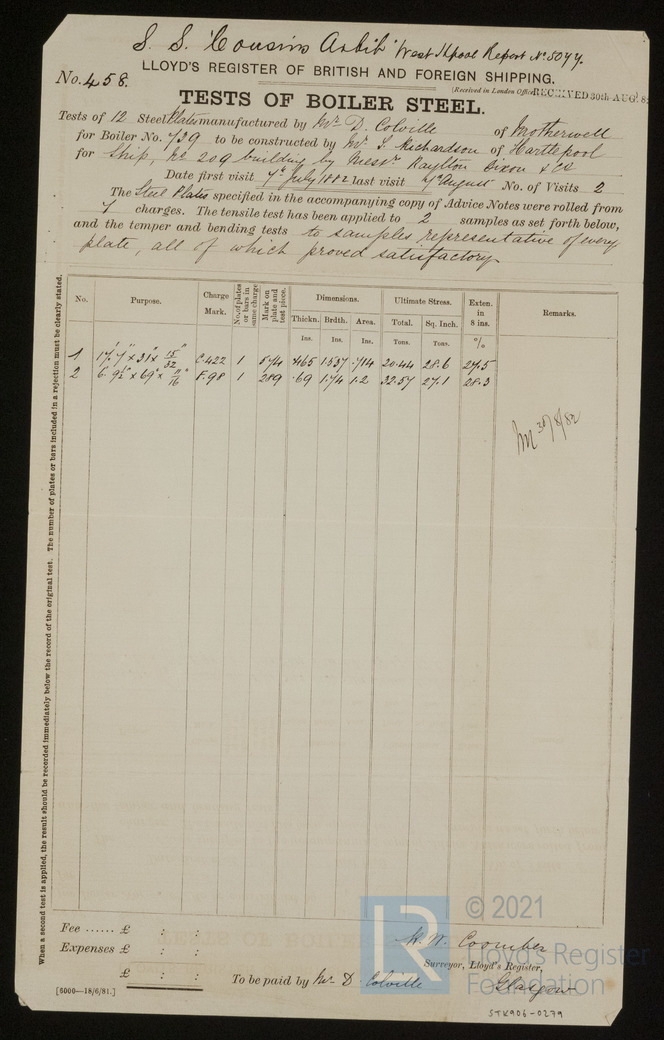 S. S. "Cousins Arbib" West Hpool Report No 5077.
LLOYD'S REGISTER OF BRITISH AND FOREIGN SHIPPING.
No. 458.
(Received in London Office RECEIVED 30th AUG. 82
TESTS OF BOILER STEEL.
Tests of 12 Steel Plates manufactured by Mr D. Colville of Motherwell
for Boiler No. 739 to be constructed by Mr T. Richardson of Hartlepool
for Ship, No 209 building by Messrs Raylton Dixon & Co
Date first visit 7th July 1882 last visit August No. of Visits 2
The Steel Plates specified in the accompanying copy of Advice Notes were rolled from
7 charges. The tensile test has been applied to 2 samples as set forth below,
and the temper and bending tests to samples representative of every
plate, all of which proved satisfactory
When a second test is applied, the result should be recorded immediately below the record of the original test. The number of plates or bars included in a rejection must be clearly stated.
No. Purpose. Charge Mark. No. of plates or bars in same charge Mark on plate and test piece. Dimensions. Ultimate Stress. Exten. in 8 ins. Remarks.
Thickn. Brdth. Area. Total. Sq. Inch.
Ins. Ins. Ins. Tons. Tons. o/o
1 × 31" × 15/32" C.422 1 574 .465 1.537 .714 20.44 28.6 27.5
2 6. 9½" × 69" × 11/16" F.98 1 289 .69 1.74 1.2 32.57 27.1 28.3
30/8/82
Fee ...... £ : :
Expenses £ : :
£ : :
W. W. Coomber
Surveyor, Lloyd's Register,
To be paid by Mr D. Colville Glasgow
[6000—18/6/81.]
STK906-0279
© 2021
LR
Lloyd's Register
Foundation